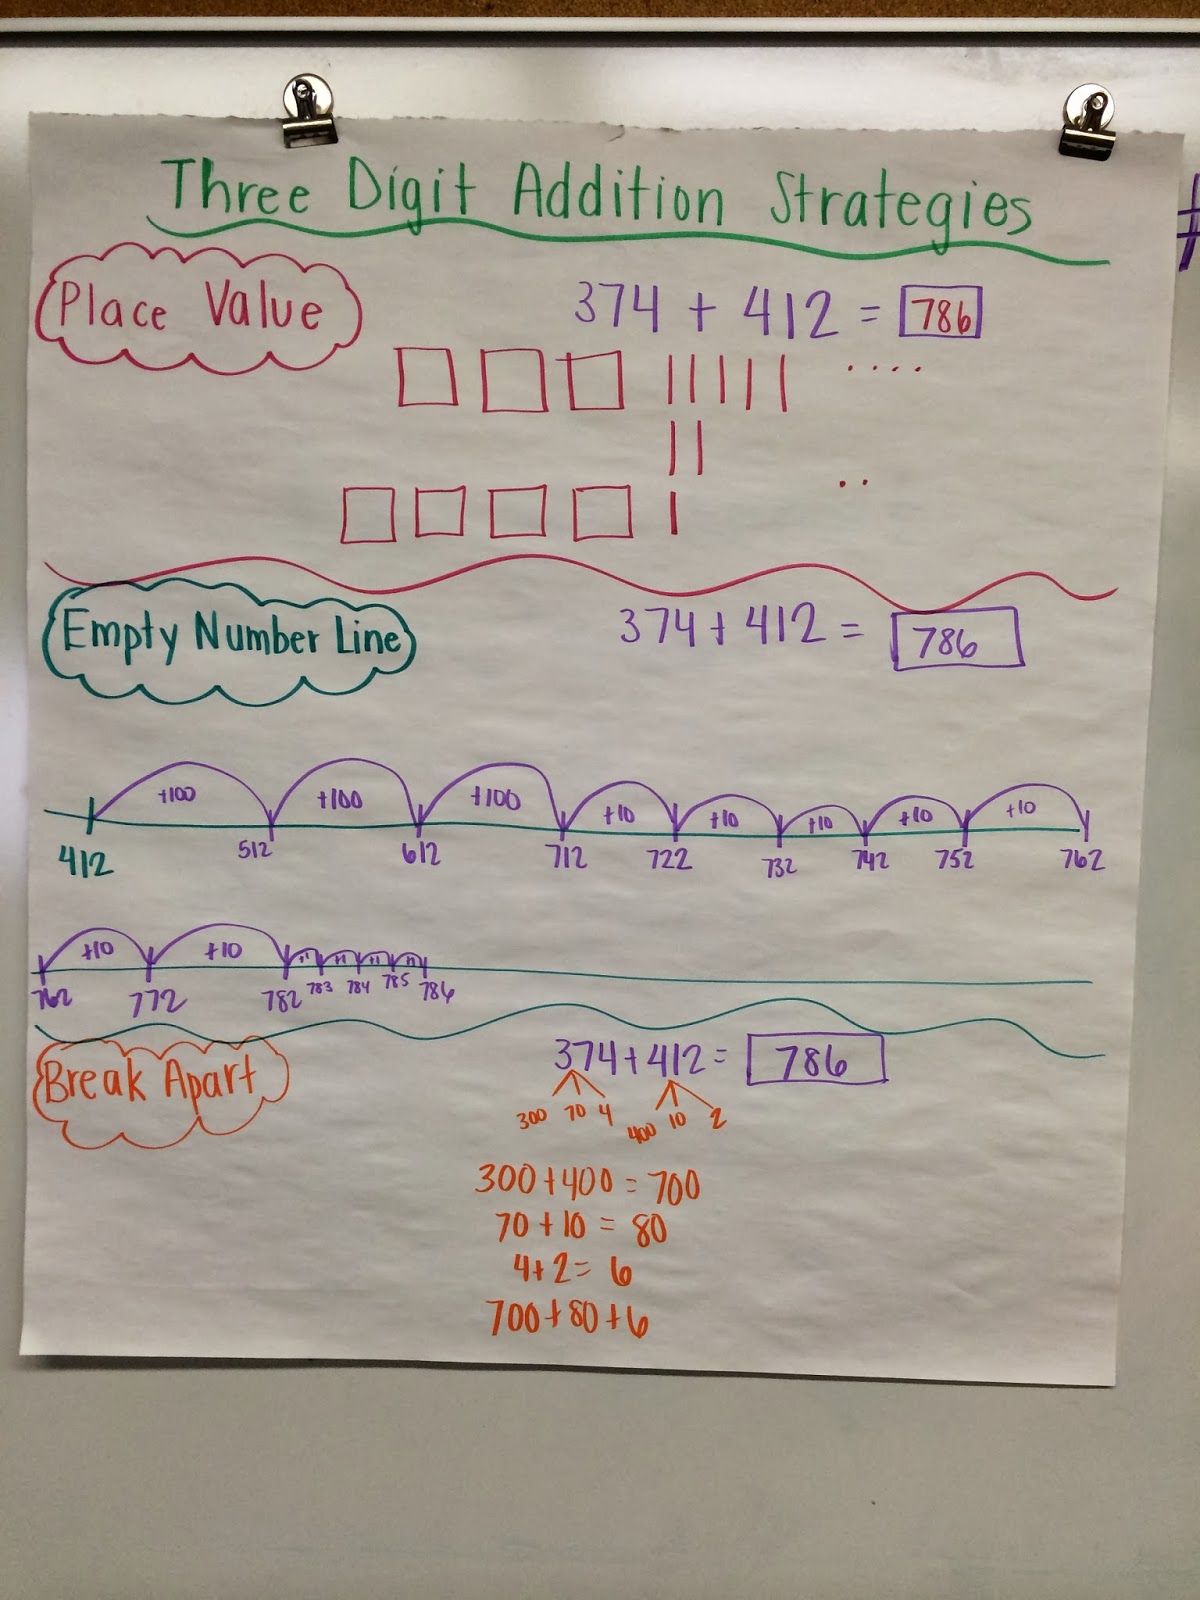 Three Digit Addition Strategies
Place Value
374 + 412 = 786
Empty Number Line
374 + 412 = 786
+100 +100 +100 +10 +10 +10 +10 +10
412 512 612 712 722 732 742 752 762
+10 +10
762 772 782 783 784 785 786
Break Apart
374 + 412 = 786
300 70 4 400 10 2
300 + 400 = 700
70 + 10 = 80
4 + 2 = 6
700 + 80 + 6